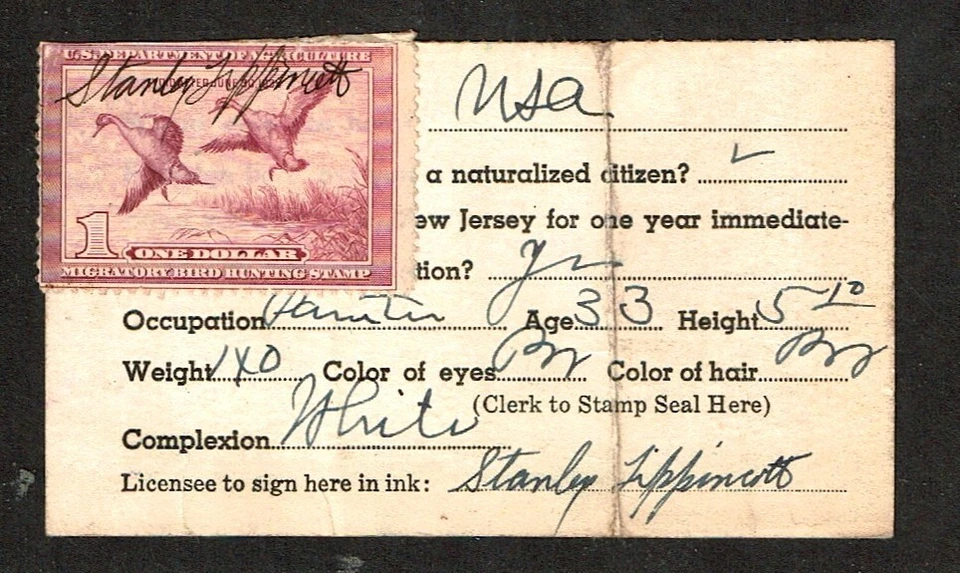 U.S. DEPARTMENT OF AGRICULTURE
Stanley Lippincott
1
ONE DOLLAR
MIGRATORY BIRD HUNTING STAMP
USA
a naturalized citizen? ✓
ew Jersey for one year immediate-
tion? Yes
Occupation Age 33 Height 5 10
Weight 140 Color of eyes Br Color of hair Br
(Clerk to Stamp Seal Here)
Complexion White
Licensee to sign here in ink: Stanley Lippincott